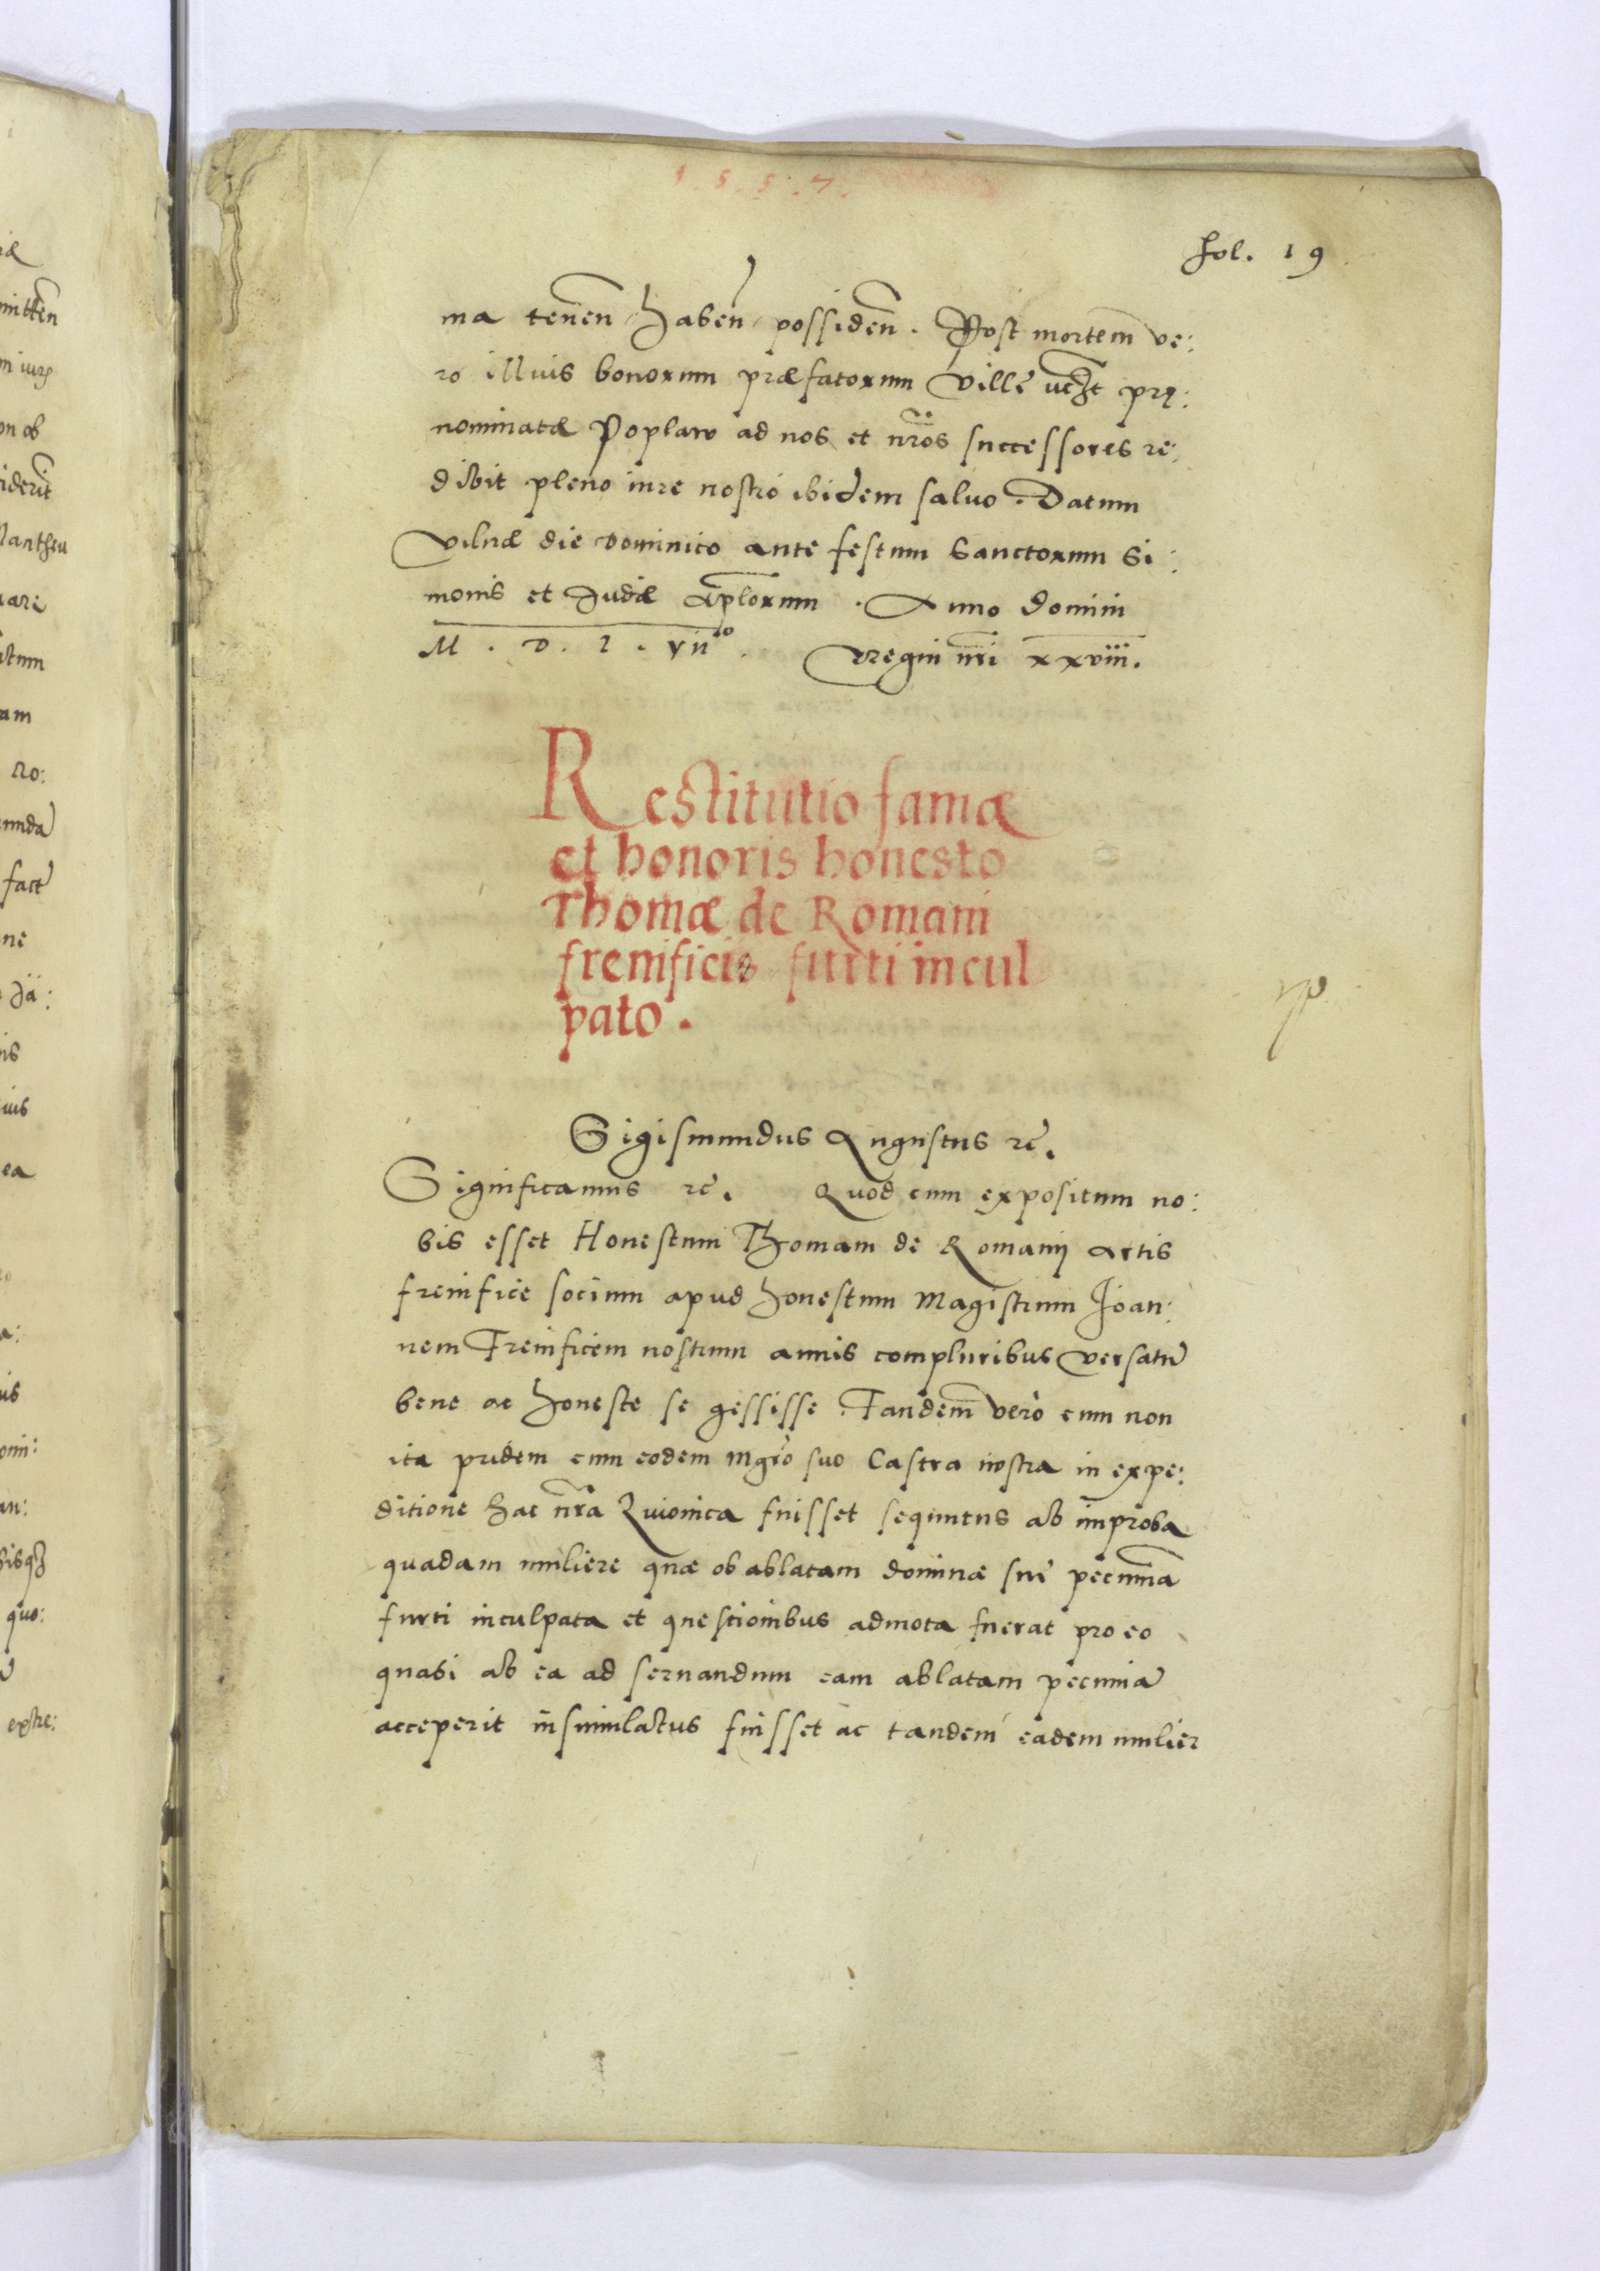 1.5.5.7.
Fol. 19
ma tenen̄ haben̄ possiden̄. Post mortem̄ ve:
ro illius bonorum præfatorum Ville prę:
nominatæ Poplaw ad nos et nr̄os successores re:
dibit pleno iure nostro ibidem salvo. Datum
Vilnæ die Dominico ante festum Sanctorum Si:
monis et Judæ Ap̄lorum. Anno Domini
M. D. L. VII°. Regni nr̄i xxviii.
Restitutio famæ
et honoris honesto
Thomæ de Romani
frenificis furti incul
pato.
Sigismundus Augustus rc̄.
Significamus rc̄. Quod cum expositum no:
bis esset Honestum Thomam de Romanij artis
frenificę socium apud honestum Magistrum Joan:
nem Frenificem nostrum annis compluribus versatū
bene ac honeste se gessisse. Tandem̄ vero cum non
ita pridem cum eodem mgr̄o suo Castra nostra in expe:
ditione hac nr̄a Livonica fuisset sequutus ab improba
quadam muliere quæ ob ablatam dominæ suę pecuniā
furti inculpata et questionibus admota fuerat pro eo
quasi ab ea ad servandum eam ablatam pecuniā
acceperit insimulatus fuisset ac tandem eadem mulier
mitten̄
m iurę
on ob
iderit
Mantheu
uare
ctum
am
no:
unda
factę
ne
Ja:
nis
ius
ea
a:
uis
omi:
an:
bisq3
quo:
extre: